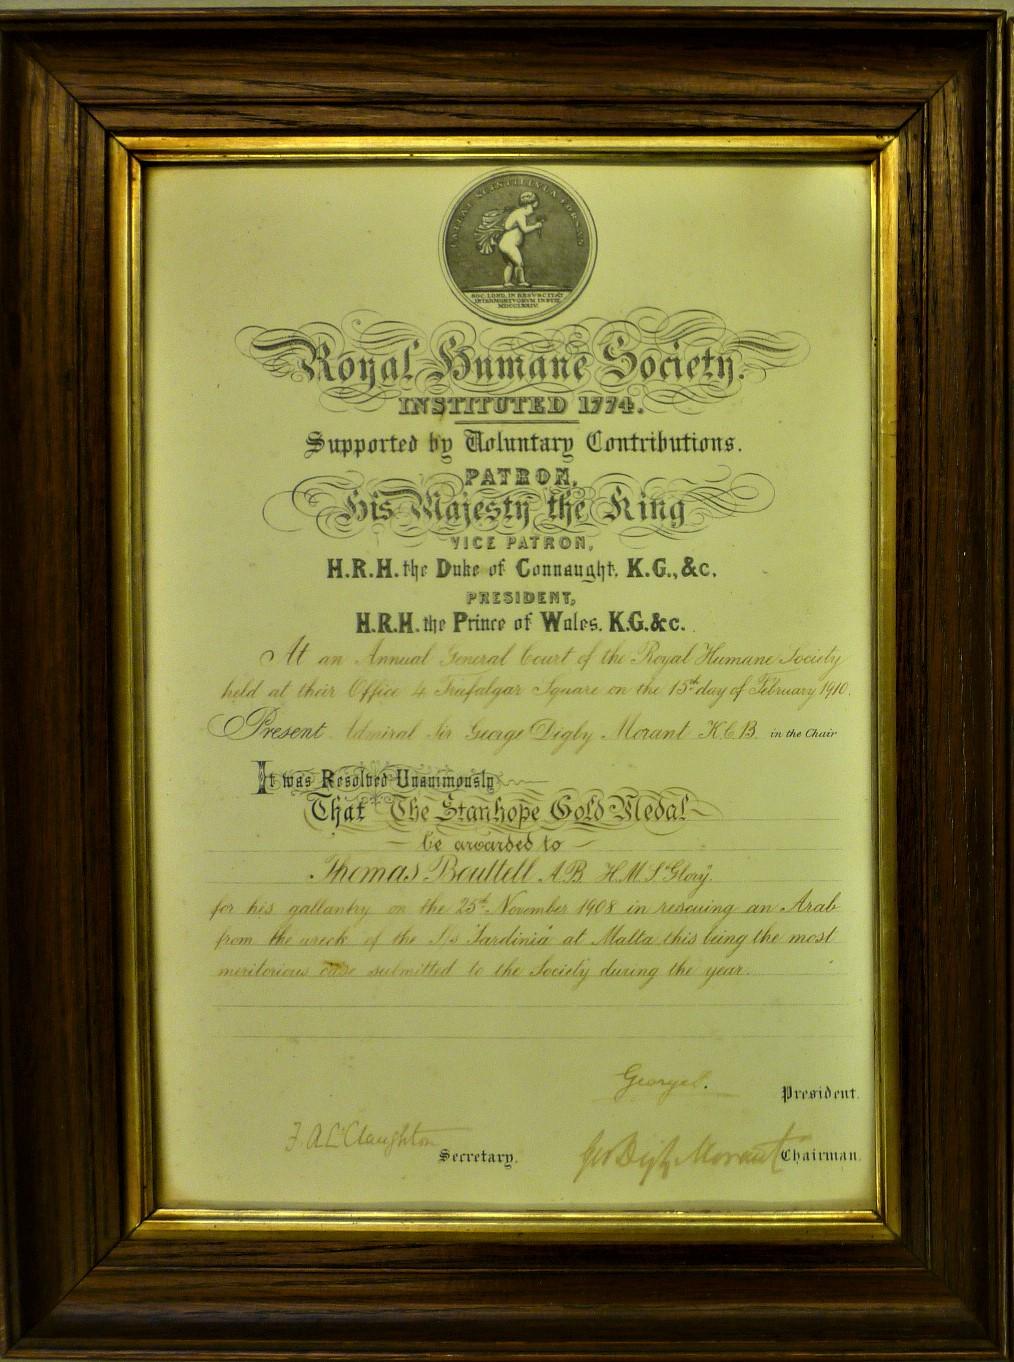 LATEAT SCINTILLVLA FORSAN
SOC. LOND. IN RESVSCITAT
INTERMORTVORVM INSTIT.
MDCCLXXIV.
Royal Humane Society.
INSTITUTED 1774.
Supported by Voluntary Contributions.
PATRON,
His Majesty the King
VICE PATRON,
H.R.H. the Duke of Connaught, K.G., &c.
PRESIDENT,
H.R.H. the Prince of Wales. K.G. &c.
At an Annual General Court of the Royal Humane Society
held at their Office 4 Trafalgar Square on the 15th day of February 1910.
Present Admiral Sir George Digby Morant K.C.B. in the Chair
It was Resolved Unanimously
That The Stanhope Gold Medal
be awarded to
Thomas Bouttell A.B. H.M.S "Glory",
for his gallantry on the 25th November 1908 in rescuing an Arab
from the wreck of the S/s "Sardinia" at Malta this being the most
meritorious case submitted to the Society during the year.
George P.
President.
F. A. C. Claughton
Secretary.
Geo Digby Morant
Chairman.